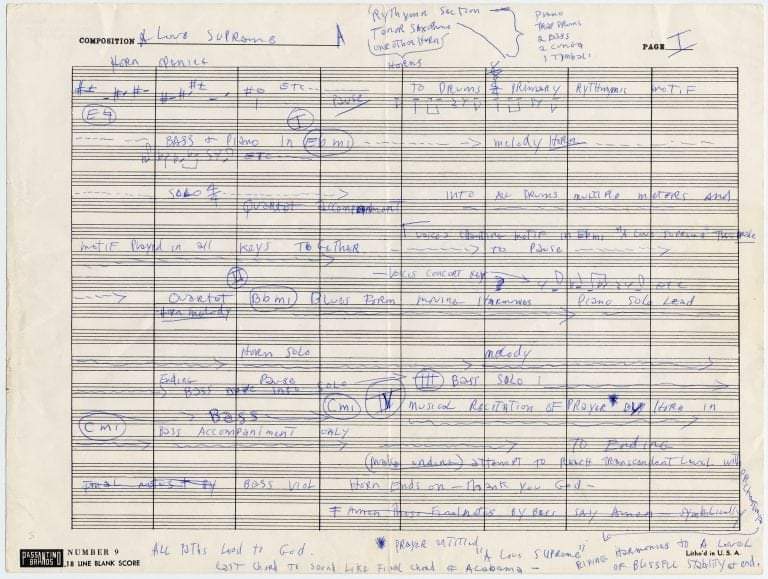 COMPOSITION A LOVE SUPREME
Rythymn Section
Tenor Saxophone
one other Horn
HORNS
PIANO
TRAP DRUMS
2 BASS
2 CONGA
1 TYMBALI
PAGE I
HORN OPENING
ETC
PAUSE
TO DRUMS PRIMARY RYTHYMIC MOTIF
E♮
I
BASS + PIANO IN Eb mi melody HORN
ETC
SOLO 4/4 INTO ALL DRUMS MULTIPLE METERS AND
QUARTET ACCOMPANIMENT
VOICES CHANTING MOTIF IN Eb mi "A LOVE SUPREME"
MOTIF PLAYED IN ALL KEYS TOGETHER TO PAUSE
II
VOICES CONCERT KEY ETC
QUARTET Bb mi BLUES FORM MOVING HARMONIES PIANO SOLO LEAD
HORN MELODY
HORN SOLO melody
ENDING PAUSE III BASS SOLO
BASS INTO SOLO
C mi IV MUSICAL RECITATION OF PRAYER BY HORN IN
C mi BASS
BASS ACCOMPANIMENT ONLY
TO ENDING
attempt to REACH TRANSCENDENT LEVEL WITH
ORCHESTRA
BASS VIOL HORN ENDS ON - THANK YOU GOD -
FINAL NOTES BY BASS SAY AMEN - SYMBOLICALLY
PASSANTINO BRANDS
NUMBER 9
18 LINE BLANK SCORE
Litho'd in U.S.A.
ALL PATHS LEAD TO GOD.
* PRAYER ENTITLED "A LOVE SUPREME"
RISING HARMONIES TO A LEVEL
OF BLISSFUL STABILITY at end.
LAST CHORD TO SOUND LIKE FINAL CHORD OF ALABAMA -